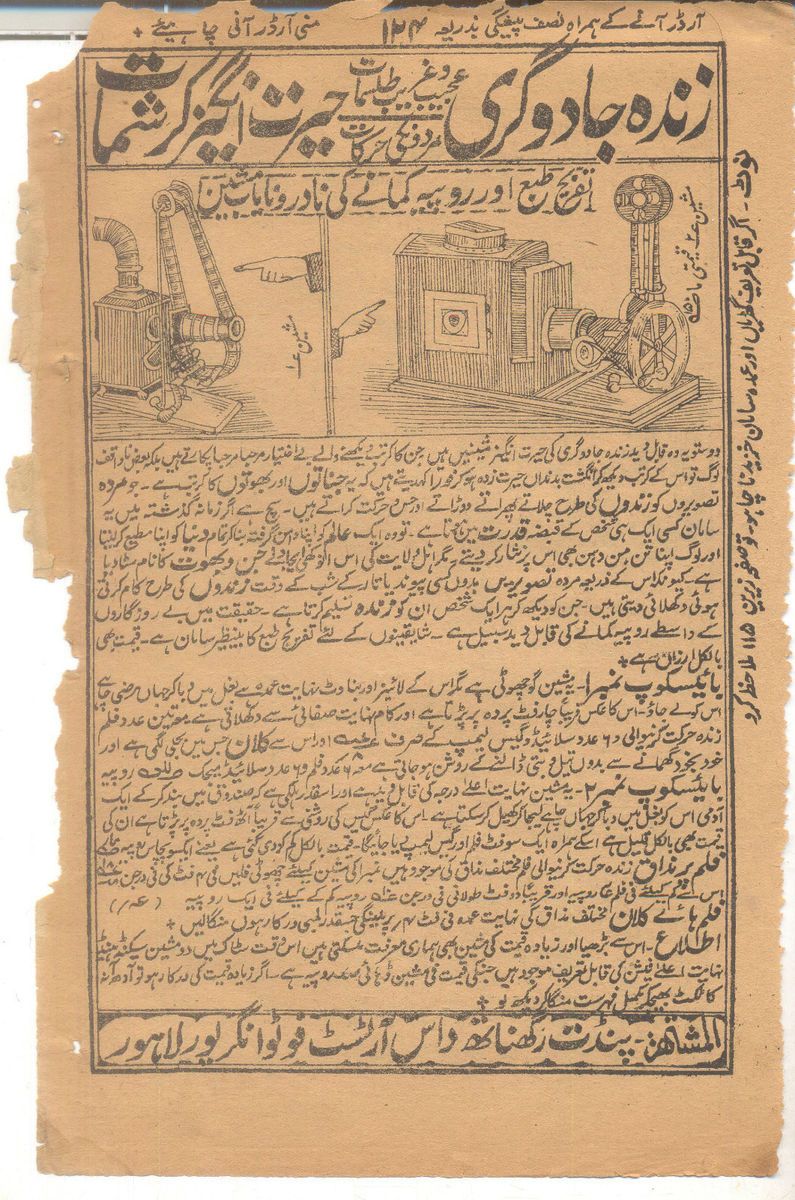 آرڈر آنے کے ہمراہ نصف پیشگی بذریعہ ۱۲۴ منی آرڈر آنی چاہیئے
زندہ جادوگری عجیب و غریب طلسمات حیرت انگیز کرشمات
تفریح طبع اور روپیہ کمانے کی نادر و نایاب مشین
مشین ۱
مشین ۲ قیمتی
نوٹ ۔ اگر قابل تعریف گھڑیاں اور عمدہ سامان خریدنا چاہو ۔ تو صفحہ زیریں ۱۱۵ ملاحظہ کرو
دوستو یہ وہ قابل دید زندہ جادوگری کی حیرت انگیز مشینیں ہیں جن کا کرتب دیکھنے والے بے اختیار مرحبا مرحبا پکارتے ہیں بلکہ بعض ناواقف
لوگ تو اس کے کرتب دیکھ کر انگشت بدنداں حیرت زدہ ہو کر فوراً کہہ دیتے ہیں کہ یہ جناتوں اور بھوتوں کا کرتب ہے ۔ جو مردہ
تصویروں کو زندوں کی طرح چلاتے پھراتے دوڑاتے اور جس و حرکت کراتے ہیں ۔ سچ ہے اگر زمانہ گذشتہ میں یہ
سامان کسی ایک ہی شخص کے قبضہ قدرت میں ہوتا ۔ تو وہ ایک عالم کو اپنا دامن گرفتہ بنا کر تمام دنیا کو اپنا مطیع کر لیتا
اور لوگ اپنا تن ، من ، دہن بھی اس پر نثار کر دیتے ۔ مگر اہل ولایت کی اس انوکھی ایجاد نے جن و بھوت کا نام مٹا دیا
ہے ۔ کیونکہ اس کے ذریعہ مردہ تصویریں بدوں کسی پیوند یا تار کے شب کے وقت زندوں کی طرح کام کرتی
ہوئی دکھلائی دیتی ہیں ۔ جن کو دیکھ کر ہر ایک شخص ان کو زندہ تسلیم کرتا ہے ۔ حقیقت میں بے روزگاروں
کے واسطے روپیہ کمانے کی قابل دید سبیل ہے ۔ شایقینوں کے لئے تفریح طبع کا بینظیر سامان ہے ۔ قیمت بھی
بالکل ارزاں ہے
بائیسکوپ نمبر ۱ ۔ یہ مشین گو چھوٹی ہے مگر اس کے لائینز اور بناوٹ نہایت عمدہ ہے بغل میں دبا کر جہاں مرضی چاہے
اس کو لے جاؤ ۔ اس کا عکس قریباً چار فٹ پردہ پر پڑتا ہے اور کام نہایت صفائی سے دکھلاتی ہے معہ تین عدد فلم
زندہ حرکت کرنیوالی و ۶ عدد سلائیڈ و گیس لیمپ کے صرف اور اس سے کلان جس میں بجلی لگی ہے اور
خود بخود گھمانے سے بدوں تیل و بتی ڈالنے کے روشن ہو جاتی ہے معہ ۶ عدد فلم و ۶ عدد سلائیڈ میجک روپیہ
بائیسکوپ نمبر ۲ ۔ یہ مشین نہایت اعلےٰ درجہ کی قابل دید ہے اور اسقدر ہلکی ہے کہ صندوق میں بند کر کے ایک
آدمی اس کو بغل میں دبا کر جہاں چاہے لیجا کر کھیل کر سکتا ہے ۔ اس کا عکس گیس کی روشنی سے قریباً آٹھ فٹ پردہ پر پڑتا ہے ان کی
قیمت بھی بالکل قلیل ہے اسکے ہمراہ ایک سو فٹ فلم اور گیس لیمپ دیا جائیگا ۔ قیمت بالکل کم کر دی گئی ہے یعنے ایکسو پچاس روپیہ
فلم ہر مذاق زندہ حرکت کرنیوالی فلم مختلف مذاق کی موجود ہیں نمبر ۱ کی مشین کیلئے چھوٹی فلمیں فی ۳ فٹ کی فی درجن
فلم ہائے کلان مختلف مذاق کی نہایت عمدہ فی فٹ ۴ر پر ملینگی جسقدر لمبی درکار ہوں منگالیں
اطلاع ۔ اس سے بڑھیا اور زیادہ قیمت کی مشین بھی ہماری معرفت مل سکتی ہیں اس وقت سٹاک میں دو مشین سیکنڈ ہینڈ
نہایت اعلےٰ فیشن کی قابل تعریف موجود ہیں جنکی قیمت فی مشین ڈہائی صد روپیہ ہے ۔ اگر زیادہ قیمت کی درکار ہو تو آدھ آنہ
کا ٹکٹ بھیج کر مکمل فہرست منگا کر دیکھ لو
المشتہر :- پنڈت رگھناتھ داس آرٹسٹ فوٹو انگر پور لاہور